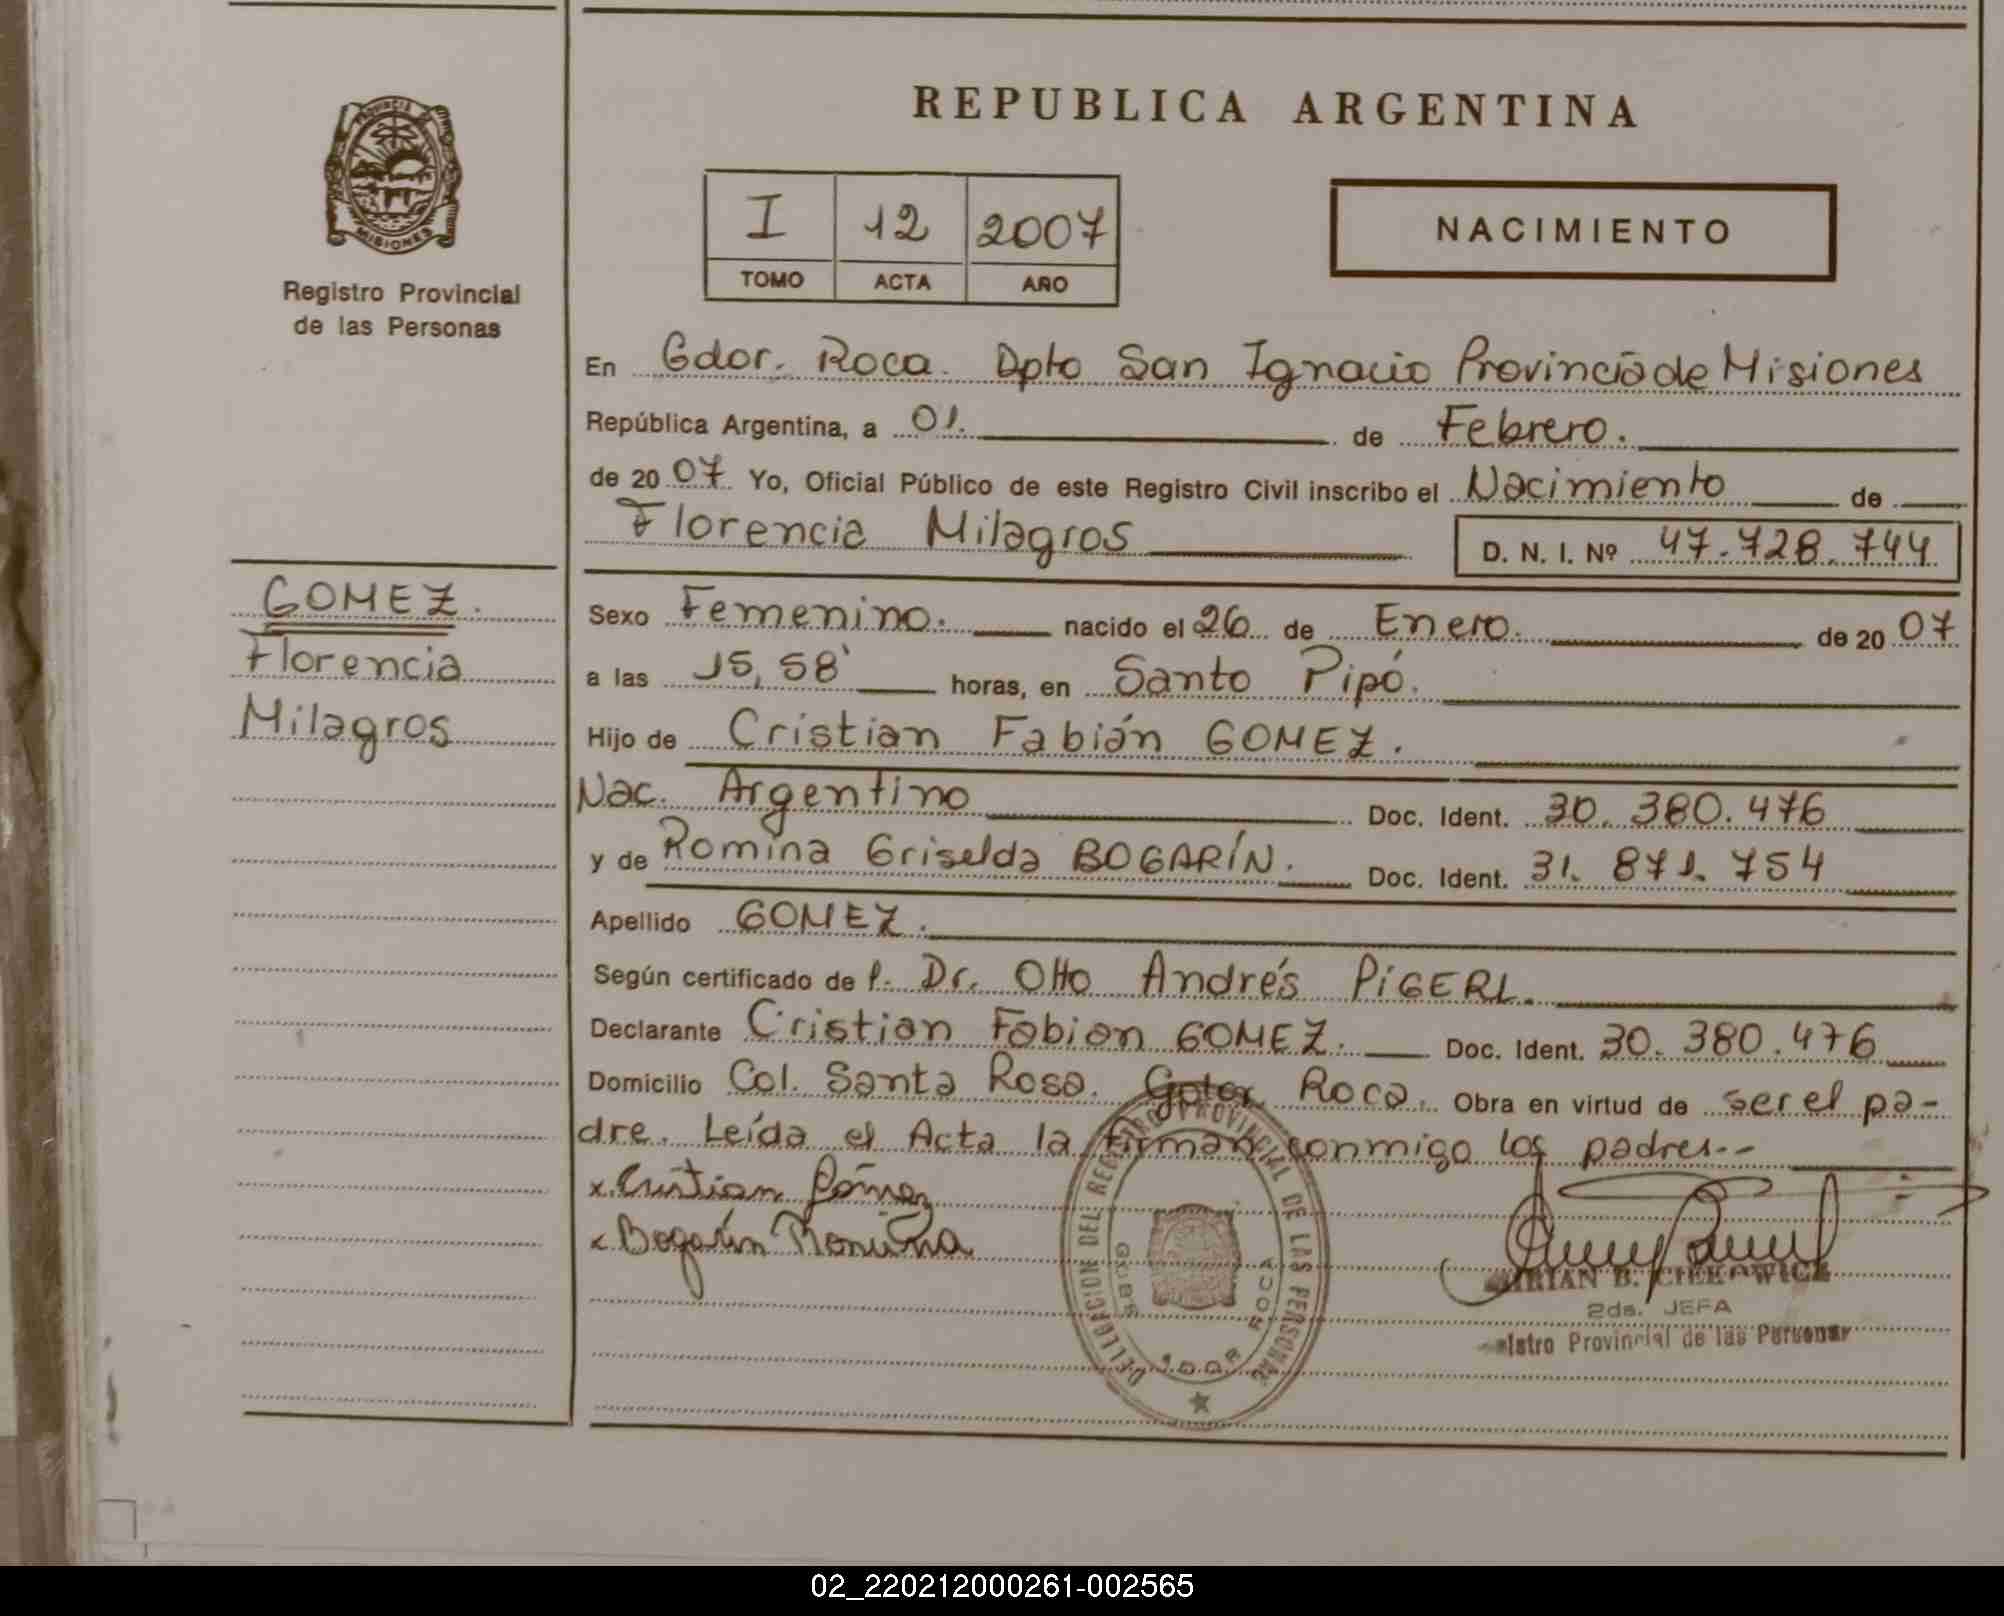 PROVINCIA DE
MISIONES
Registro Provincial
de las Personas
GOMEZ.
Florencia
Milagros
REPUBLICA ARGENTINA
I 12 2007
TOMO ACTA AÑO
NACIMIENTO
En Gdor. Roca. Dpto San Ignacio Provincia de Misiones
República Argentina, a 01. de Febrero.
de 20 07 Yo, Oficial Público de este Registro Civil inscribo el Nacimiento de
Florencia Milagros D. N. I. Nº 47.728.744
Sexo Femenino. nacido el 26 de Enero. de 20 07
a las 15,58' horas, en Santo Pipó.
Hijo de Cristian Fabián GOMEZ.
Nac. Argentino Doc. Ident. 30.380.476
y de Romina Griselda BOGARÍN. Doc. Ident. 31.871.754
Apellido GOMEZ.
Según certificado de P. Dr. Otto Andrés PIGERL.
Declarante Cristian Fabian GOMEZ. Doc. Ident. 30.380.476
Domicilio Col. Santa Rosa. Gdor. Roca. Obra en virtud de ser el pa-
dre. Leída el Acta la firman conmigo los padres.--
x. Cristian Gómez
x Bogarín Romina
DELEGACION DEL REGISTRO PROVINCIAL DE LAS PERSONAS
ROCA
B. CIEKOWICZ
2da. JEFA
Provincial de las Personas
02_220212000261-002565